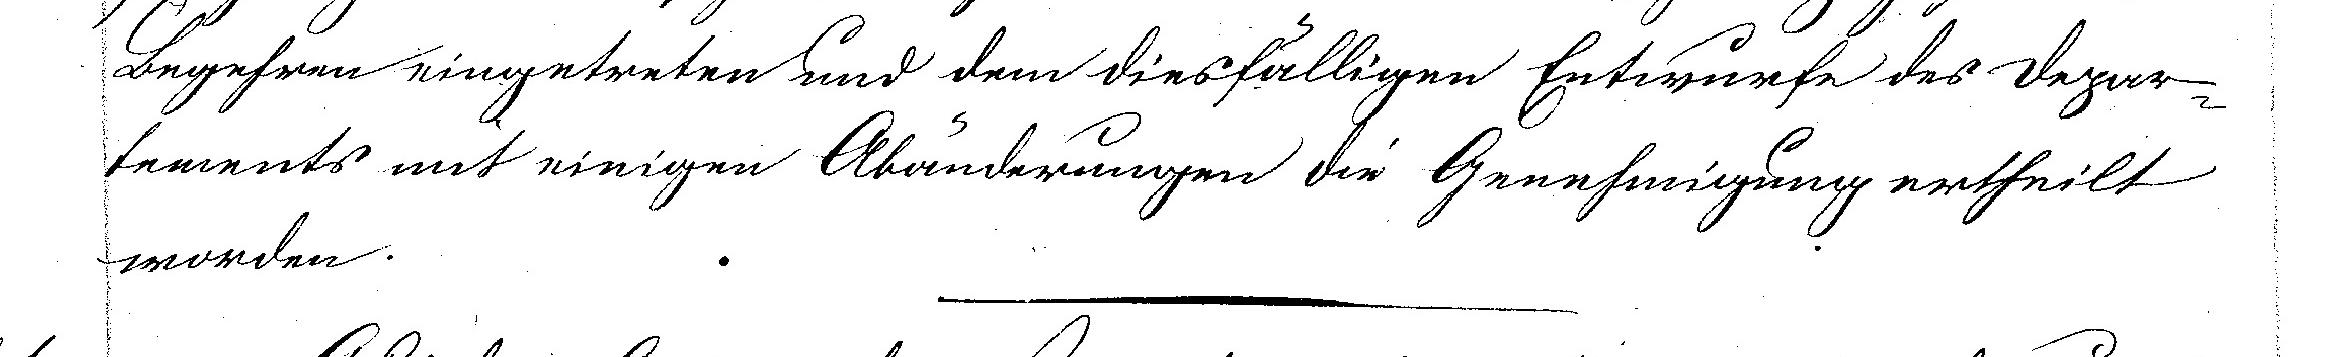 Begehren eingetreten und dem diesfälligen Entwurfe des Depar=
tements mit einigen Abänderungen die Genehmigung ertheilt
worden.